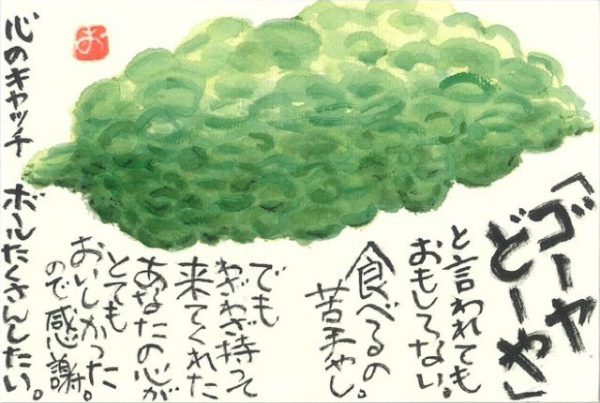 「ゴーヤ
どーや」
と言われても
おもしろない。
食べるの
苦手やし。
でも
わざわざ持って
来てくれた
あなたの心が
とても
おいしかった
ので感謝。
心のキャッチボールたくさんしたい。
お